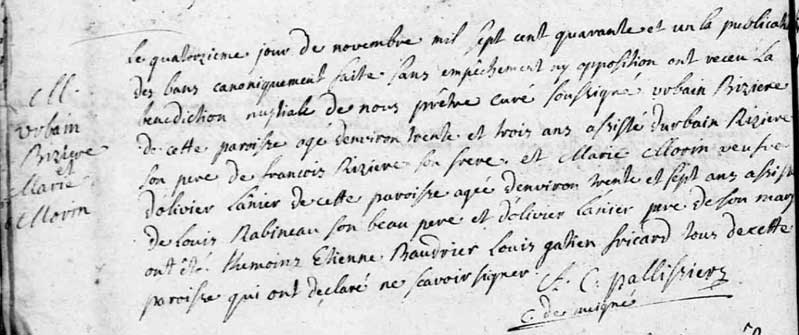 M.
urbain
Biziere
et
Marie
Morin
Le quatorzieme jour de novembre mil sept cent quarante et un la publicat
des bans canoniquement faite sans empêchement ny opposition ont receu la
benediction nuptiale de nous prêtre curé soussigné urbain Biziere
de cette paroisse agé denviron trente et trois ans assisté durbain Biziere
son pere de francois Biziere son frere et Marie Morin veufve
dolivier Lanier de cette paroisse agee denviron trente et sept ans assist
de Louis Rabineau son beau pere et dolivier Lanier pere de son mary
ont été temoins Etienne Baudrier Louis gatien fricard tous de cette
paroisse qui ont declaré ne scavoir signer
A. C. pallissier
c. de meigné